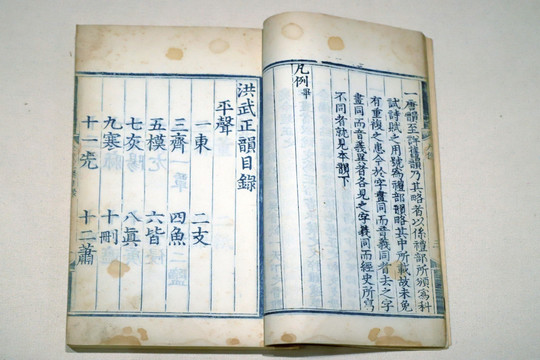 一唐韻至詳舊韻乃其略者以係禮部所頒為科
試詩賦之用號為禮部韻略其中所載故未免
有重複之患今於字畫同而音義同者去之字
畫同而音義異者各見之字義同而經史所寫
不同者就見本韻下
凡例畢
洪武正韻目錄
平聲
一東 二支
三齊 四魚
五模 六皆
七灰 八真
九寒 十刪
十一先 十二蕭